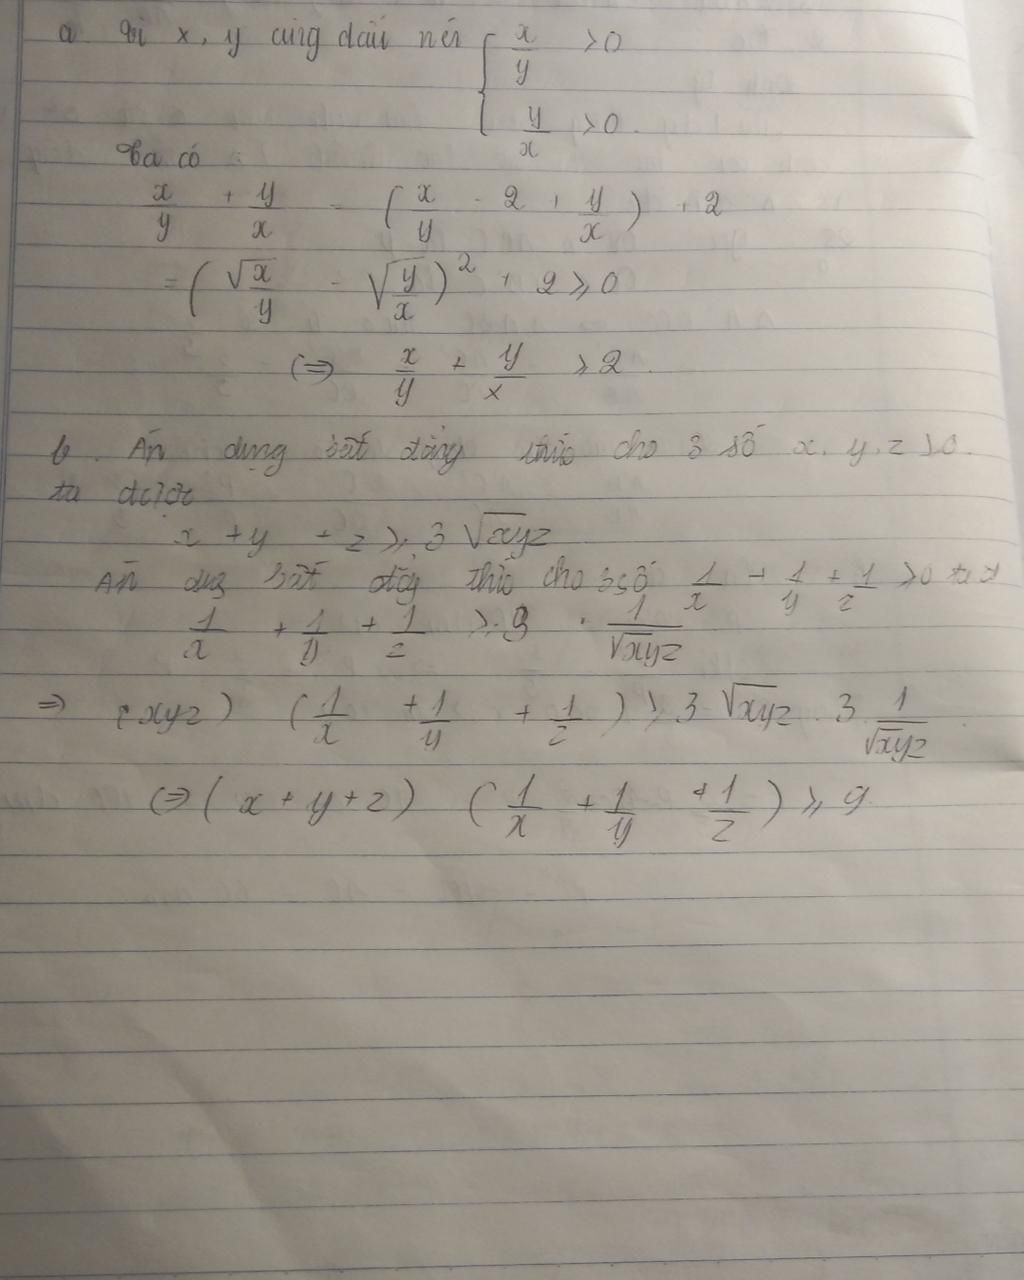 a Vì x, y cùng dấu nên { x/y > 0
y/x > 0.
Ta có :
x/y + y/x = ( x/y - 2 + y/x ) + 2
= ( √x/y - √(y/x) )² + 2 ≥ 0
(=> x/y + y/x ≥ 2.
b. Án dụng bất đẳng thức cho 3 số x, y, z > 0.
ta được
x + y + z ≥ 3 √xyz
Án dug bất đẳg thức cho 3 số 1/x + 1/y + 1/z > 0 ta đ
1/x + 1/y + 1/z ≥ 3 . 1/√xyz
=> (xyz) ( 1/x + 1/y + 1/z ) ≥ 3 √xyz . 3 1/√xyz .
(=> ( x + y + z ) ( 1/x + 1/y + 1/z ) ≥ 9.